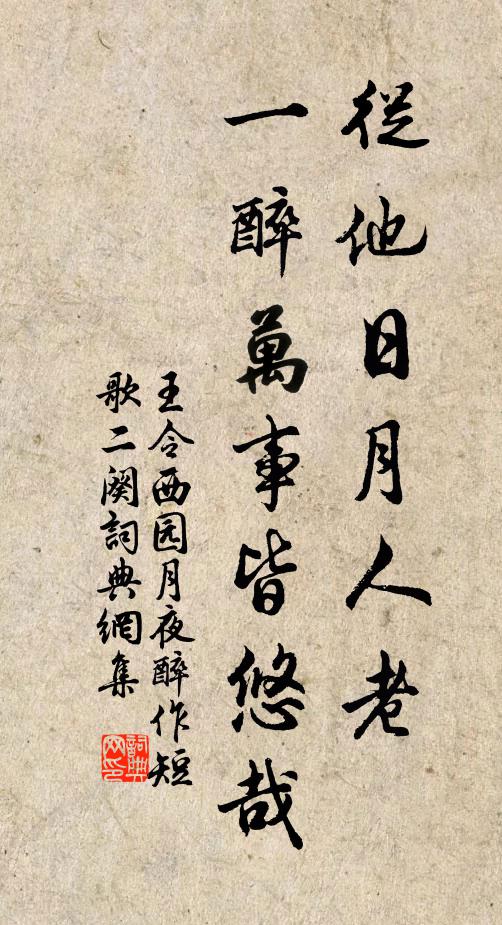 從他日月人老
一醉萬事皆悠哉
王令西园月夜醉作短
歌二阕詞典網集
詞典
网印